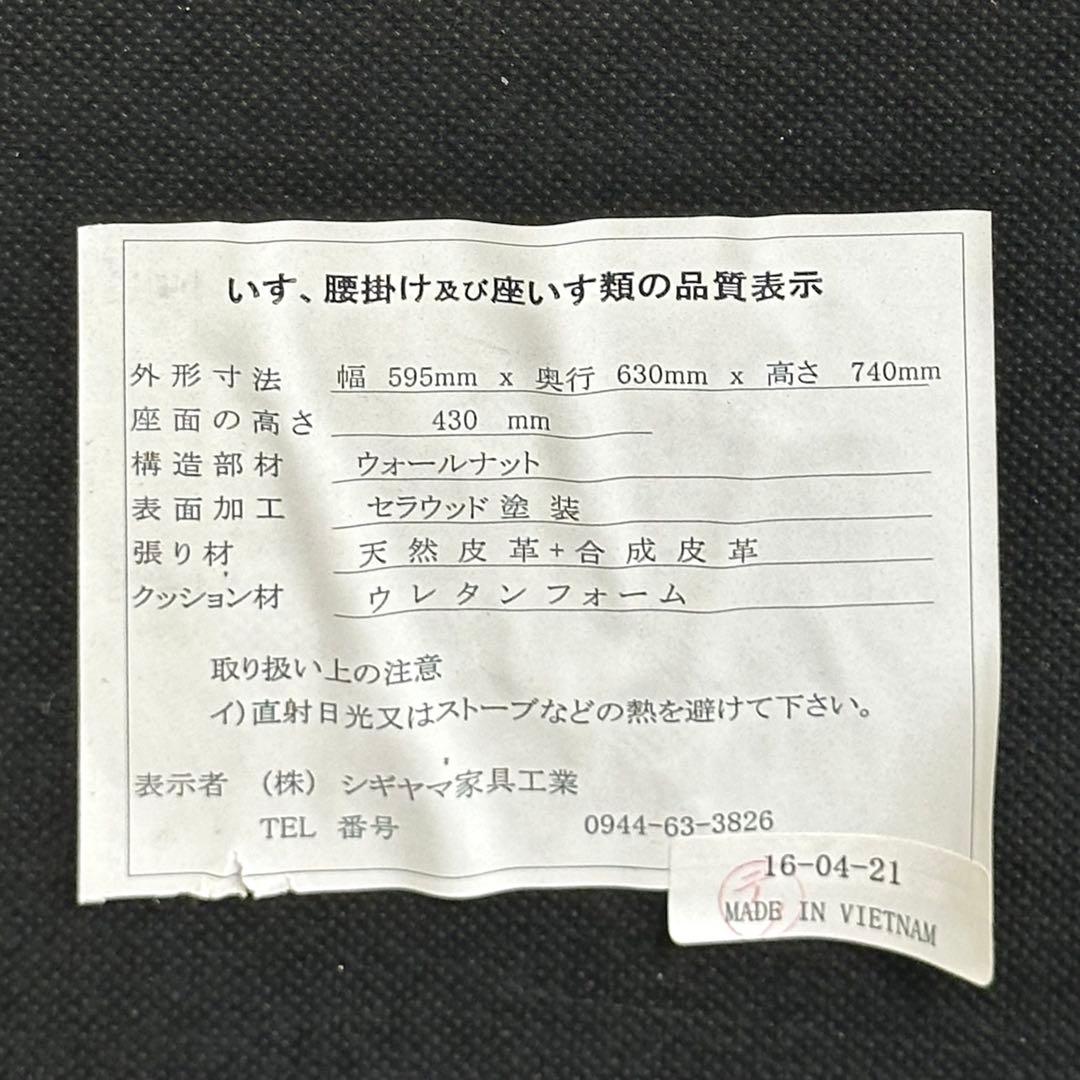 いす、腰掛け及び座いす類の品質表示
外形寸法 幅 595mm x 奥行 630mm x 高さ 740mm
座面の高さ 430 mm
構造部材 ウォールナット
表面加工 セラウッド塗装
張り材 天然皮革+合成皮革
クッション材 ウレタンフォーム
取り扱い上の注意
イ)直射日光又はストーブなどの熱を避けて下さい。
表示者 (株) シギヤマ家具工業
TEL 番号 0944-63-3826
16-04-21
MADE IN VIETNAM